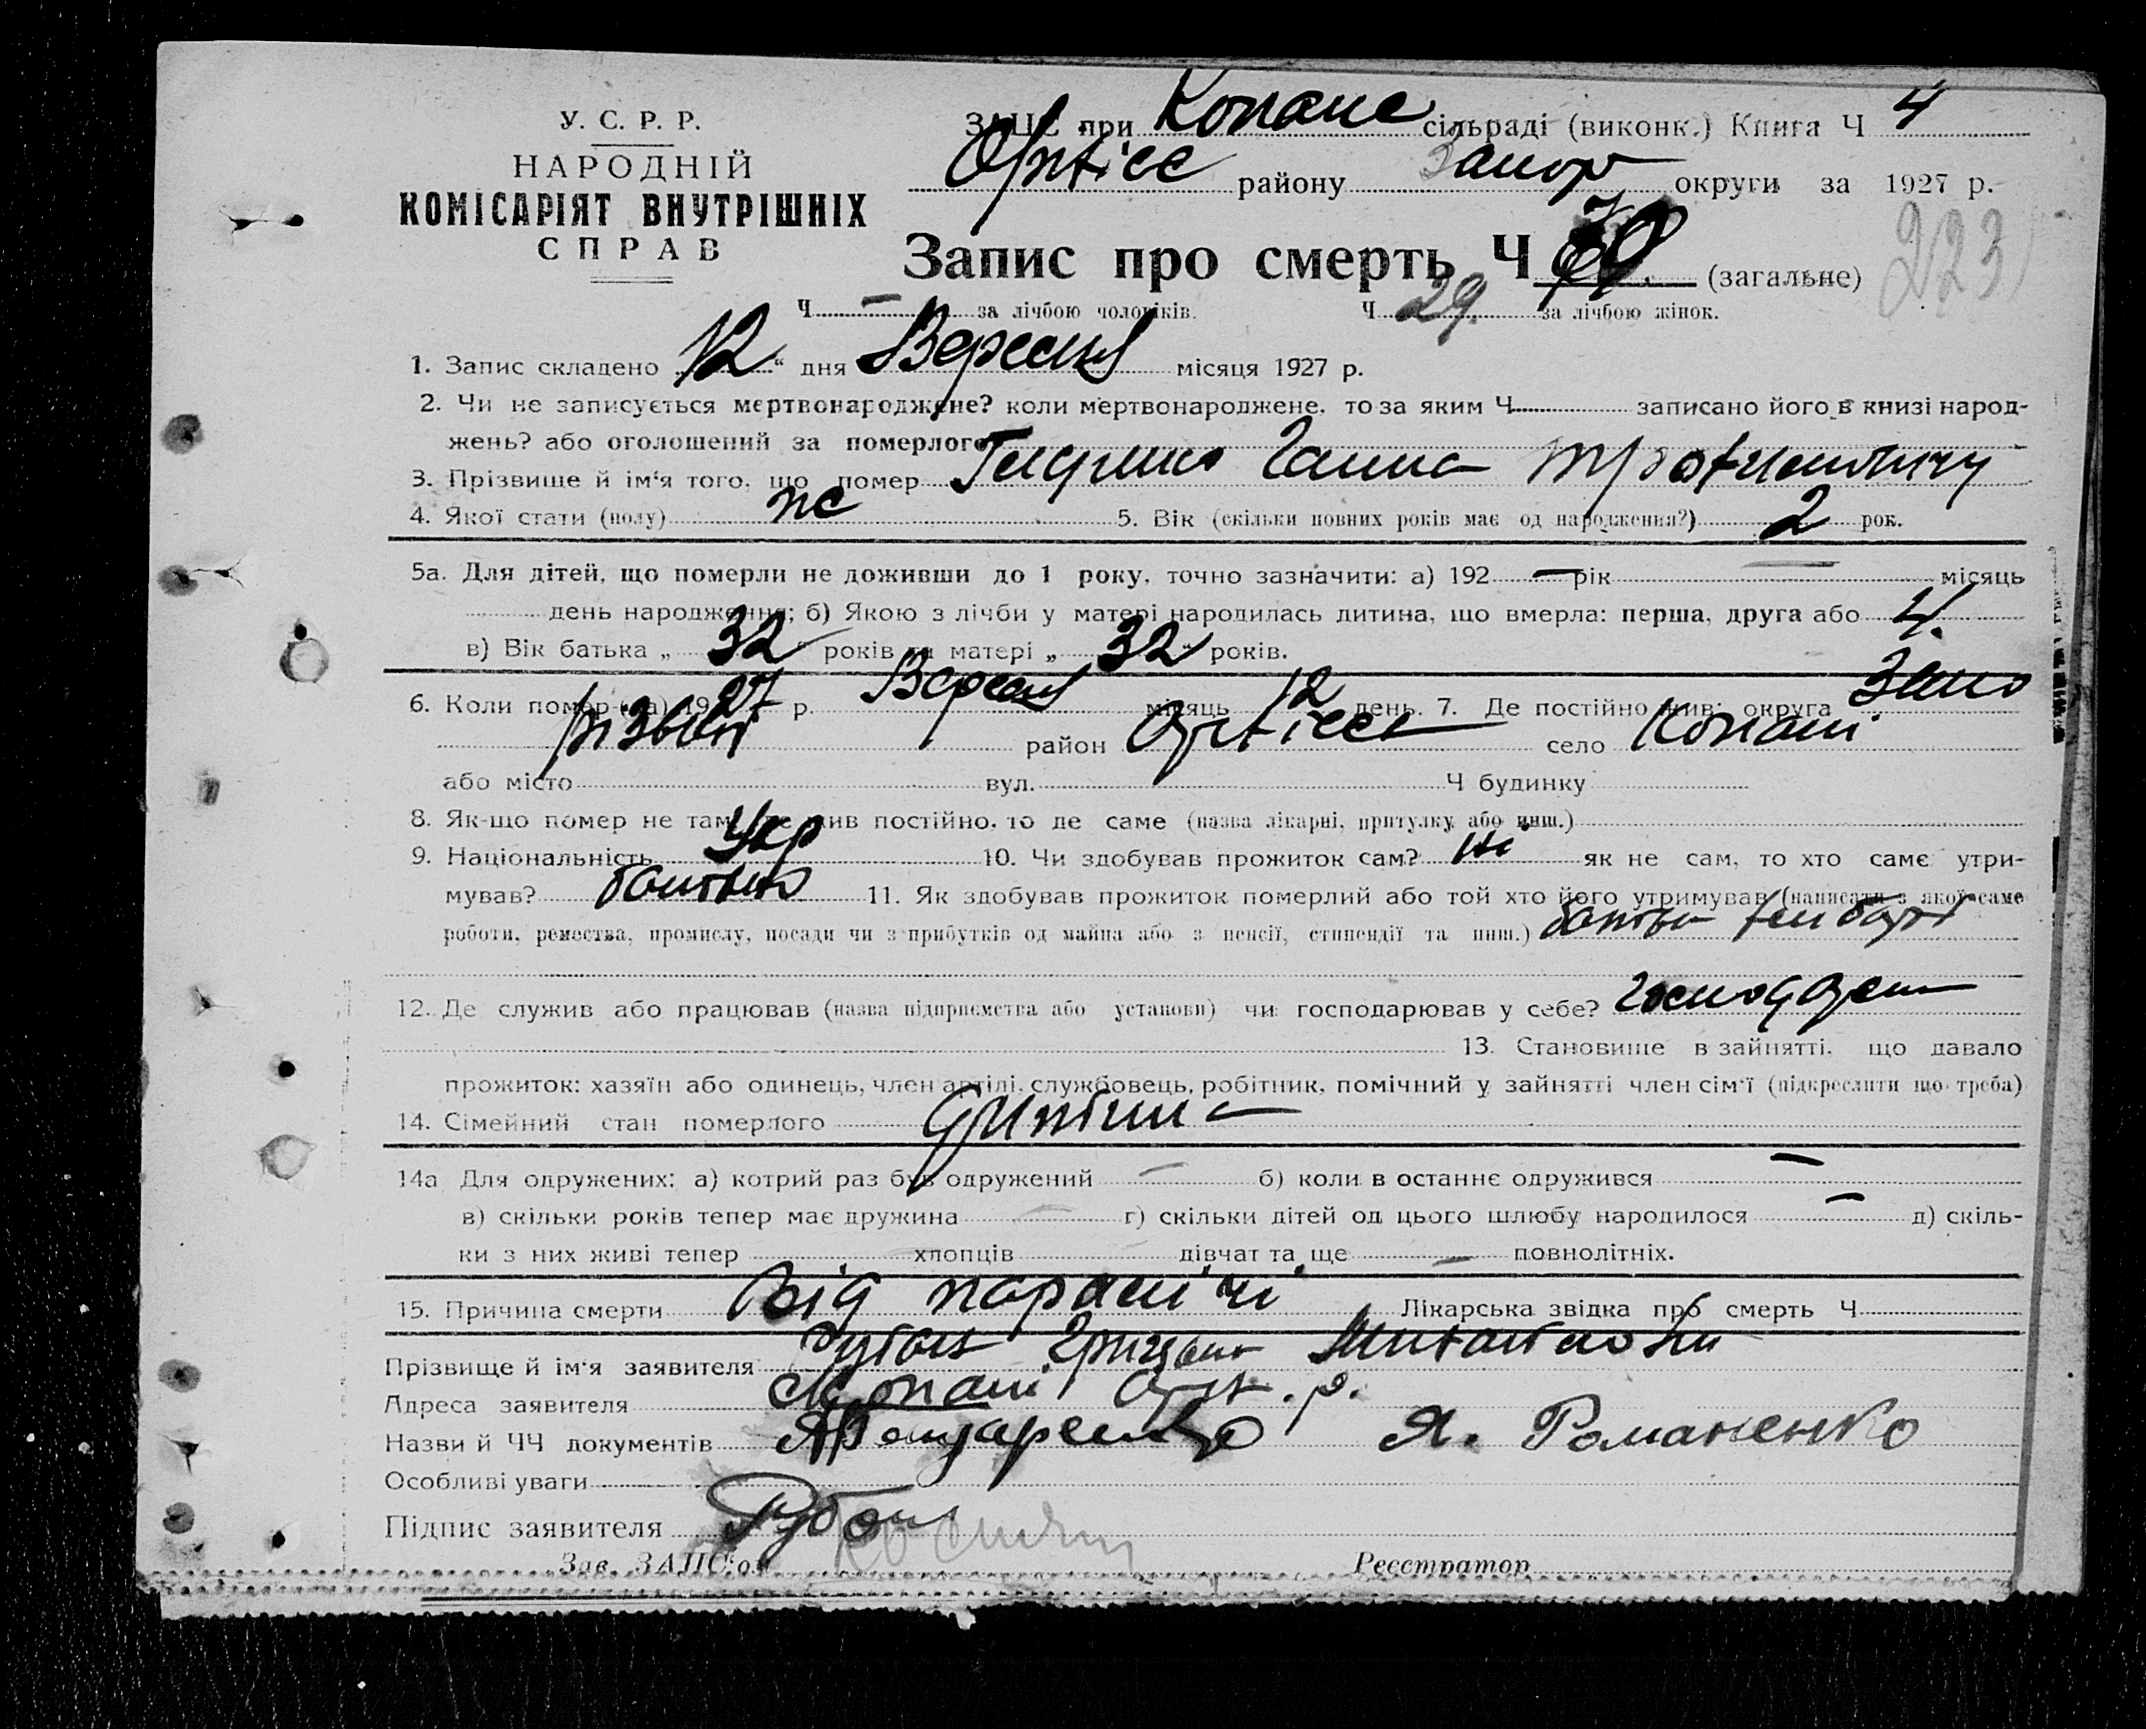 У. С. Р. Р.
НАРОДНІЙ
КОМІСАРІЯТ ВНУТРІШНІХ
СПРАВ
ЗАЦС при Копане сільраді (виконк.) Книга Ч 4
Оріхівс району Запор округи за 1927 р.
223
Запис про смерть Ч 70. (загальне)
Ч — за лічбою чоловіків. Ч 29. за лічбою жінок.
1. Запис складено „12“ дня Вересня місяця 1927 р.
2. Чи не записується мертвонароджене? коли мертвонароджене, то за яким Ч записано його в книзі народ-
жень? або оголошений за померлого
3. Прізвище й ім‘я того, що помер Ганна
4. Якої стати (полу) жс 5. Вік (скільки повних років має од народження?) 2 рок.
5а. Для дітей, що померли не доживши до 1 року, точно зазначити: а) 192 — рік — місяць
день народження; б) Якою з лічби у матері народилась дитина, що вмерла: перша, друга або 4.
в) Вік батька „32“ років та матері „32“ років.
6. Коли помер (ла) 1927 р. Вересня місяць 12 день. 7. Де постійно жив: округа Запо
різький район Оріхівськ село Копані
або місто вул. Ч будинку
8. Як-що помер не там, де жив постійно, то де саме (назва лікарні, притулку, або инш.)
9. Національність Укр 10. Чи здобував прожиток сам? Ні як не сам, то хто саме утри-
мував? батько 11. Як здобував прожиток померлий або той хто його утримував (написати з якої саме
роботи, ремества, промислу, посади чи з прибутків од майна або з пенсії, стипендії та инш.) батько хлібороб
12. Де служив або працював (назва підприємства або установи) чи господарював у себе? господарем
13. Становище в зайнятті, що давало
прожиток: хазяїн або одинець, член артілі, службовець, робітник, помічний у зайнятті член сім‘ї (підкреслити що треба)
14. Сімейний стан померлого дитина
14а Для одружених: а) котрий раз був одружений — б) коли в останнє одружився —
в) скільки років тепер має дружина — г) скільки дітей од цього шлюбу народилося — д) скіль-
ки з них живі тепер хлопців дівчат та ще — повнолітніх.
15. Причина смерти Від Лікарська звідка про смерть Ч
Прізвище й ім‘я заявителя
Адреса заявителя с. Копані Оріх. р.
Назви й ЧЧ документів Я. Романенко
Особливі уваги
Підпис заявителя Рубан
Зав. ЗАЦС‘ом Реєстратор